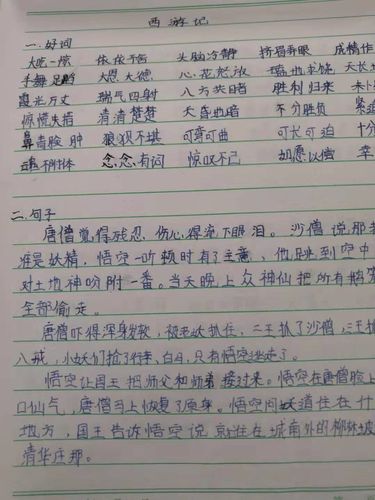 西游记
一、好词
大吃一惊 依依不舍 头脑冷静 挤眉弄眼 成精作
手舞足蹈 大恩大德 心花怒放 磕头求饶 天长
霞光万丈 瑞气四射 八方共暗 胜利归来
惊慌失措 清清楚楚 天昏地暗 不分胜负 紧追
鼻青脸肿 狼狈不堪 可弯可曲 可长可迫 十分
魂不附体 念念有词 惊叹不己 如愿以偿 幸
二、句子
唐僧觉得残忍、伤心得流下眼泪。沙僧说那
准是妖精,悟空一听顿时有了主意、他跳到空中
对土地神吩附一番。当天晚上众神仙把所有鹅笼
全部偷走。
唐僧吓得浑身发软,被老妖抓住,二王抓了沙僧,三王抓
八戒,小妖们抢了行李,白马,只有悟空逃走了。
悟空让国王把师父和师弟接过来。悟空在唐僧脸上
口仙气,唐僧马上恢复了原身。悟空问妖道住在什
地方,国王告诉悟空说就住在城南外的柳林坡
清华庄那。